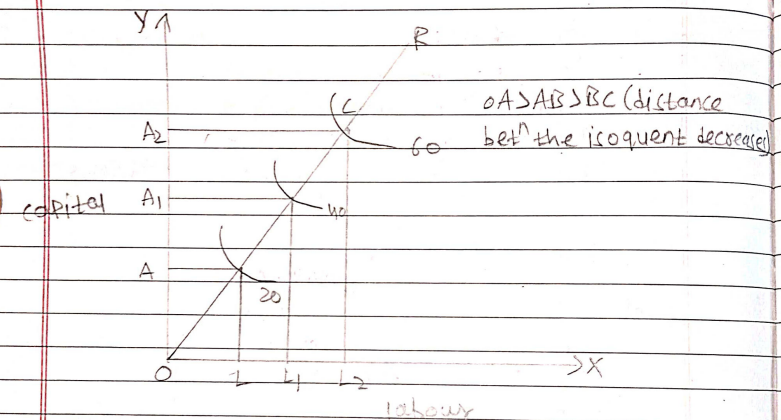 Y
R
C
OA>AB>BC (distance
A2
60
betn the isoquent decreases)
capital
A1
40
A
20
O
L
L1
L2
X
labour